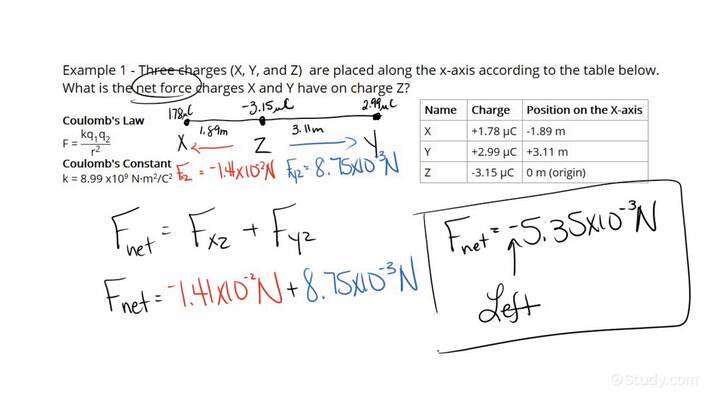 Example 1 - Three charges (X, Y, and Z) are placed along the x-axis according to the table below.
What is the net force charges X and Y have on charge Z?
1.78μC -3.15μC 2.99μC
1.89m 3.11m
X Z Y
Coulomb's Law
F = kq₁q₂ / r²
Coulomb's Constant
k = 8.99 x10⁹ N·m²/C²
Fxz = -1.41x10⁻²N Fyz = 8.75x10⁻³N
Name Charge Position on the X-axis
X +1.78 μC -1.89 m
Y +2.99 μC +3.11 m
Z -3.15 μC 0 m (origin)
Fnet = Fxz + Fyz
Fnet = -1.41x10⁻²N + 8.75x10⁻³N
Fnet = -5.35x10⁻³N
Left
©Study.com